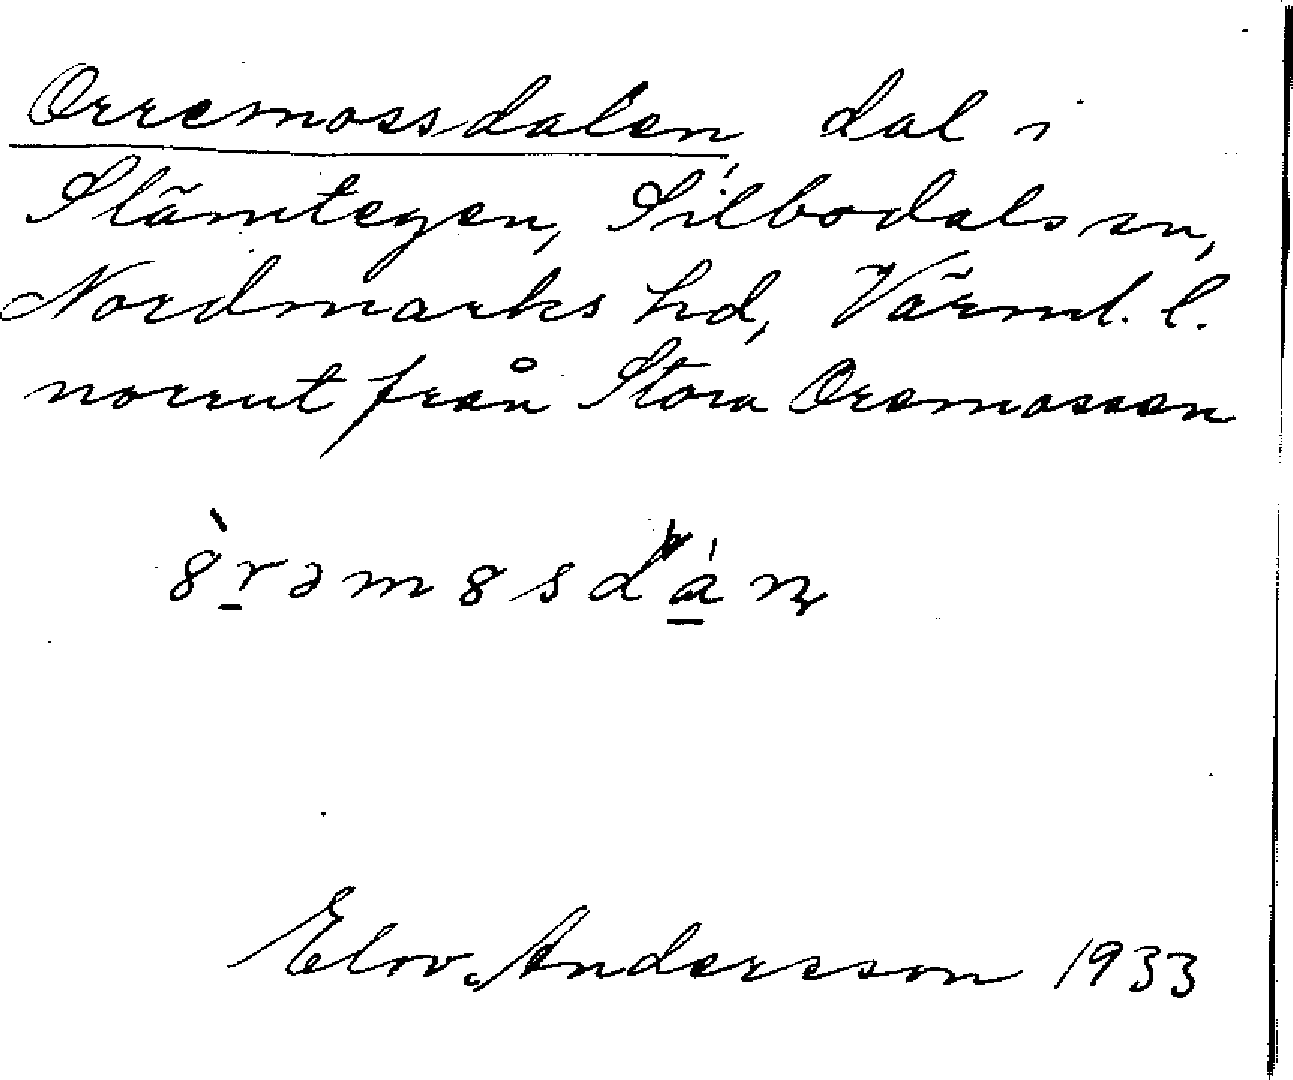 Orremossdalen, dal i
Slämtegen, Silbodals sn,
Nordmarks hd, Värml. l.
norrut från Stora Orremossen
Elov Andersson 1933